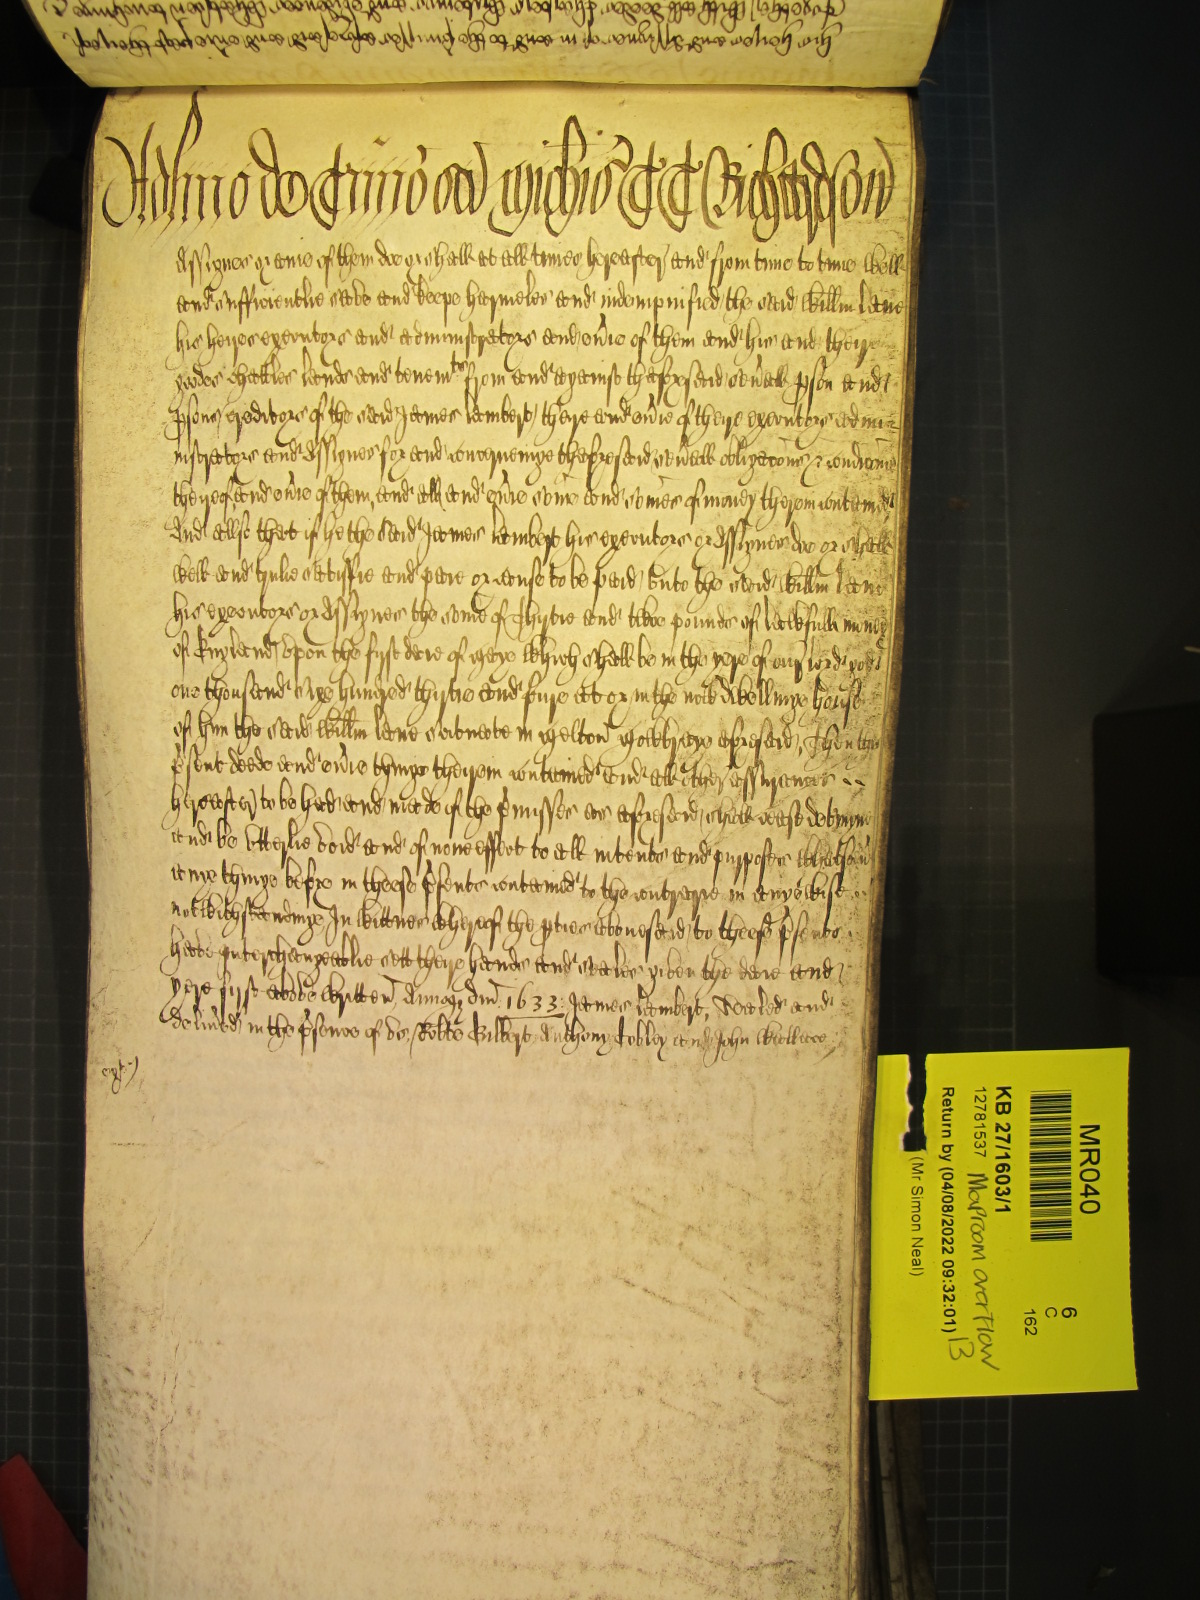 Adhuc de Termino sci Michis Richardson
Assignes or anie of them doe or shall at all times hereafter and from time to time well
and sufficientlie save and keepe harmeles and indempnified the said Willm Lane
his heires executors and administrators and evie of them and his and theire
goodes chattles lands and tenemts from and against thaforesaid sevall pson and
psons creditors of the said James Lambert, theire and evie of theire executors admi
nistrators and Assignes for and concerninge thaforesaid sevall obligacons & condicons
thereof, and evie of them, and all and evie some and somes of money therein conteined
And allso that if he the said James Lambert his executors or Assignes doe or shall
well and trulie satisfie and paie or cause to be paid unto the said Willm Lane
his executors or Assignes the some of Thirtie and twoe pounds of lawfull money
of England, upon the first daie of Maye which shall be in the yere of our lord god
one thousand sixe hundred thirtie and five at or in the now dwellinge house
of him the said Willm Lane scituate in Melton Mowbraye aforesaid, Then this
psent deede and evie thinge therein conteined and all other assurances
hereafter to be had and made of the pmisses as aforesaid, shall cease determine
and be utterlie void and of none effect to all intents and purposes whatsoevr
anye thinge before in theese psents conteined to the contrarie in anye wise
notwithstandinge In wittnes whereof the pties abovesaid to theese psents
have interchangeablie sett theire hands and seales yeven the daie and
yere first above written, Annoq dni 1633 James Lambert, Sealed and
delived in the psence of us, Robte Gilbert Anthony Cobley and John Wallace
MR040
KB 27/1603/1
12781537 Maproom overflow
Return by (04/08/2022 09:32:01) 13
(Mr Simon Neal)
6
C
162